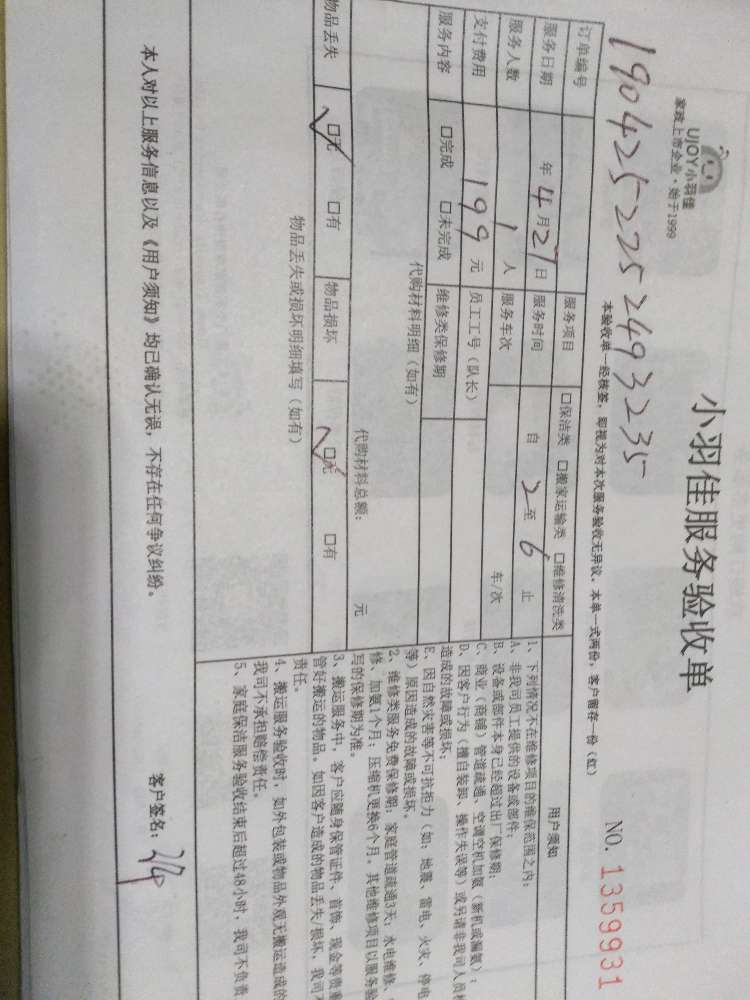 UJOY小羽佳
家政上市企业·始于1999
小羽佳服务验收单
NO. 1359931
本验收单一经核签，即视为对本次服务验收无异议，本单一式两份，客户留存一份（红）
订单编号 1904252252493235
服务项目 □保洁类 □搬家运输类 □维修清洗类
服务日期 年4月27日 服务时间 自2至6止
服务人数 1人 服务车次 车/次
支付费用 199元 员工工号（队长）
服务内容 □完成 □未完成 维修类保修期
代购材料明细（如有）
代购材料总额： 元
物品丢失 ☑无 □有 物品损坏 ☑无 □有
物品丢失或损坏明细填写（如有）
用户须知
1、下列情况不在维修项目的维保范围之内：
A、非我司员工提供的设备或部件；
B、设备或部件本身已经超过出厂保修期；
C、商业（商铺）管道疏通、空调空机加氨（新机或漏氨）；
D、因客户行为（擅自装卸、操作失误等）或另请非我司人员
造成的故障或损坏；
E、因自然灾害等不可抗拒力（如：地震、雷电、火灾、停电
等）原因造成的故障或损坏。
2、维修类服务免费保修期：家庭管道疏通3天；水电维修、
修、加氨1个月；压缩机更换6个月。其他维修项目以服务验
写的保修期为准。
3、搬运服务中，客户应随身保管证件、首饰、现金等贵重
管好搬运的物品。如因客户造成的物品丢失/损坏，我司不
责任。
4、搬运服务验收时，如外包装或物品外观无搬运造成的
我司不承担赔偿责任。
5、家庭保洁服务验收结束后超过48小时，我司不负责
本人对以上服务信息以及《用户须知》均已确认无误，不存在任何争议纠纷。
客户签名：